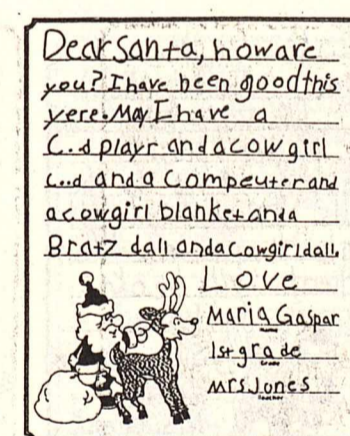 Dear Santa, how are
you? I have been good this
yere. May I have a
C..d playr and a cow girl
c..d and a Compeuter and
a cowgirl blanket and a
Bratz dall and a Cowgirl dall.
Love
Maria Gaspar
Name
1st grade
Grade
Mrs Jones
Teacher